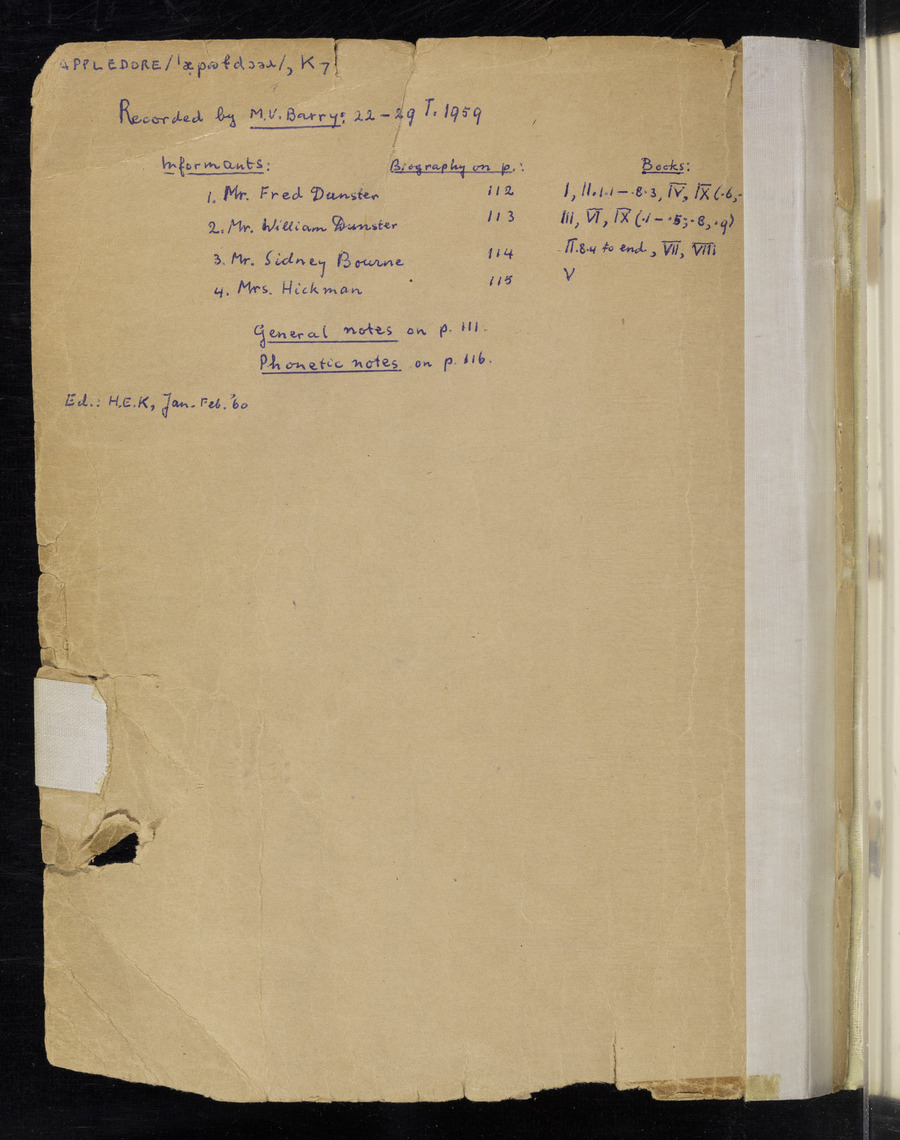 APPLEDORE /ˈæpəɫdɔəɹ/, K 7
Recorded by M.V. Barry: 22 – 29 I. 1959
Informants: Biography on p.: Books:
1. Mr. Fred Dunster 112 I, II.1.1 – .8.3, IV, IX (.6,
2. Mr. William Dunster 113 III, VI, IX (.1 – .5; .8, .9)
3. Mr. Sidney Bourne 114 II.8.4 to end, VII, VIII
4. Mrs. Hickman 115 V
General notes on p. 111.
Phonetic notes on p. 116.
Ed.: H.E.K, Jan.-Feb. '60